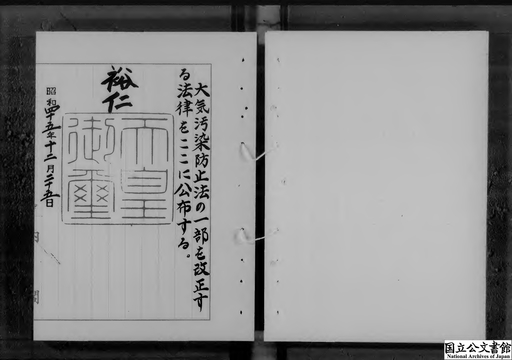 大気汚染防止法の一部を改正す
る法律をここに公布する。
裕仁
天皇
御璽
昭和四十五年十二月二十五日
国立公文書館
National Archives of Japan